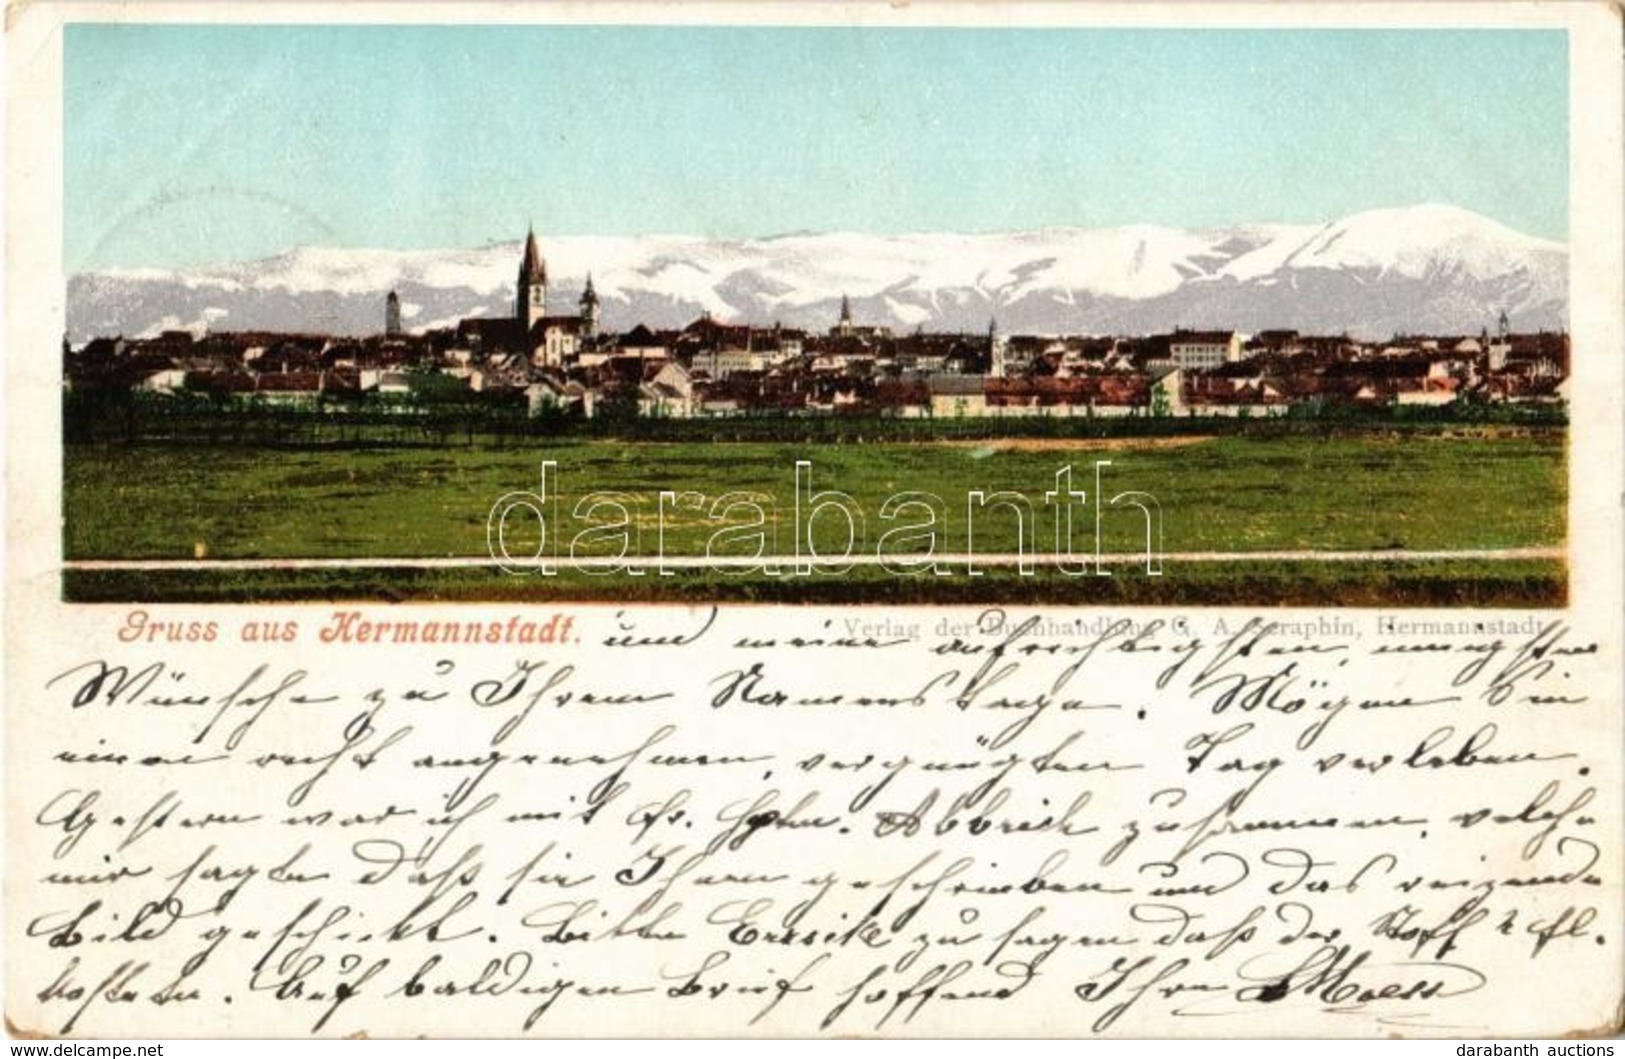 Gruss aus Hermannstadt. und meine aufrichtigsten, innigsten
Verlag der Buchhandlung G. A. Seraphin, Hermannstadt
Wünsche zu Ihrem Namenstage. Mögen Sie
einen recht angenehmen, vergnügten Tag verleben.
Gestern war ich mit Fr. Hptm. zusammen, welche
mir sagte daß sie Ihnen geschrieben und das reizende
Bild geschickt. Bitte Erzsike zu sagen daß der Stoff 2 fl.
kostete. Auf baldigen Brief hoffend Ihre
darabanth
delcampe.net
darabanth auctions